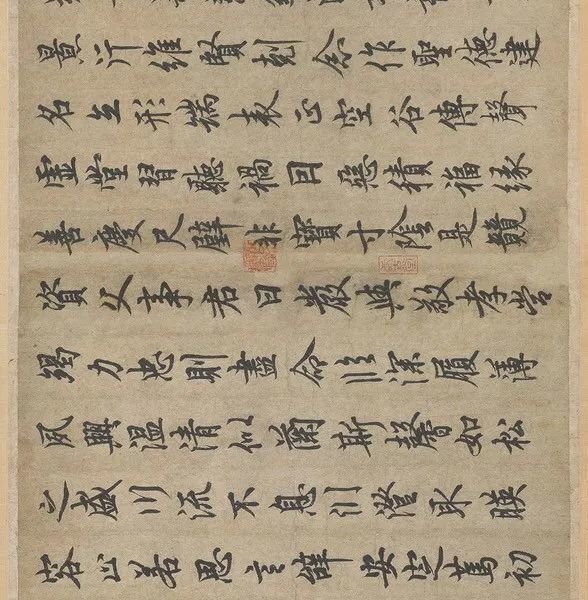 景行維賢剋念作聖德建
名立形端表正空谷傳聲
虛堂習聽禍因惡積福緣
善慶尺璧非寶寸陰是競
資父事君曰嚴與敬孝當
竭力忠則盡命臨深履薄
夙興溫清似蘭斯馨如松
之盛川流不息淵澄取暎
容止若思言辭安定篤初